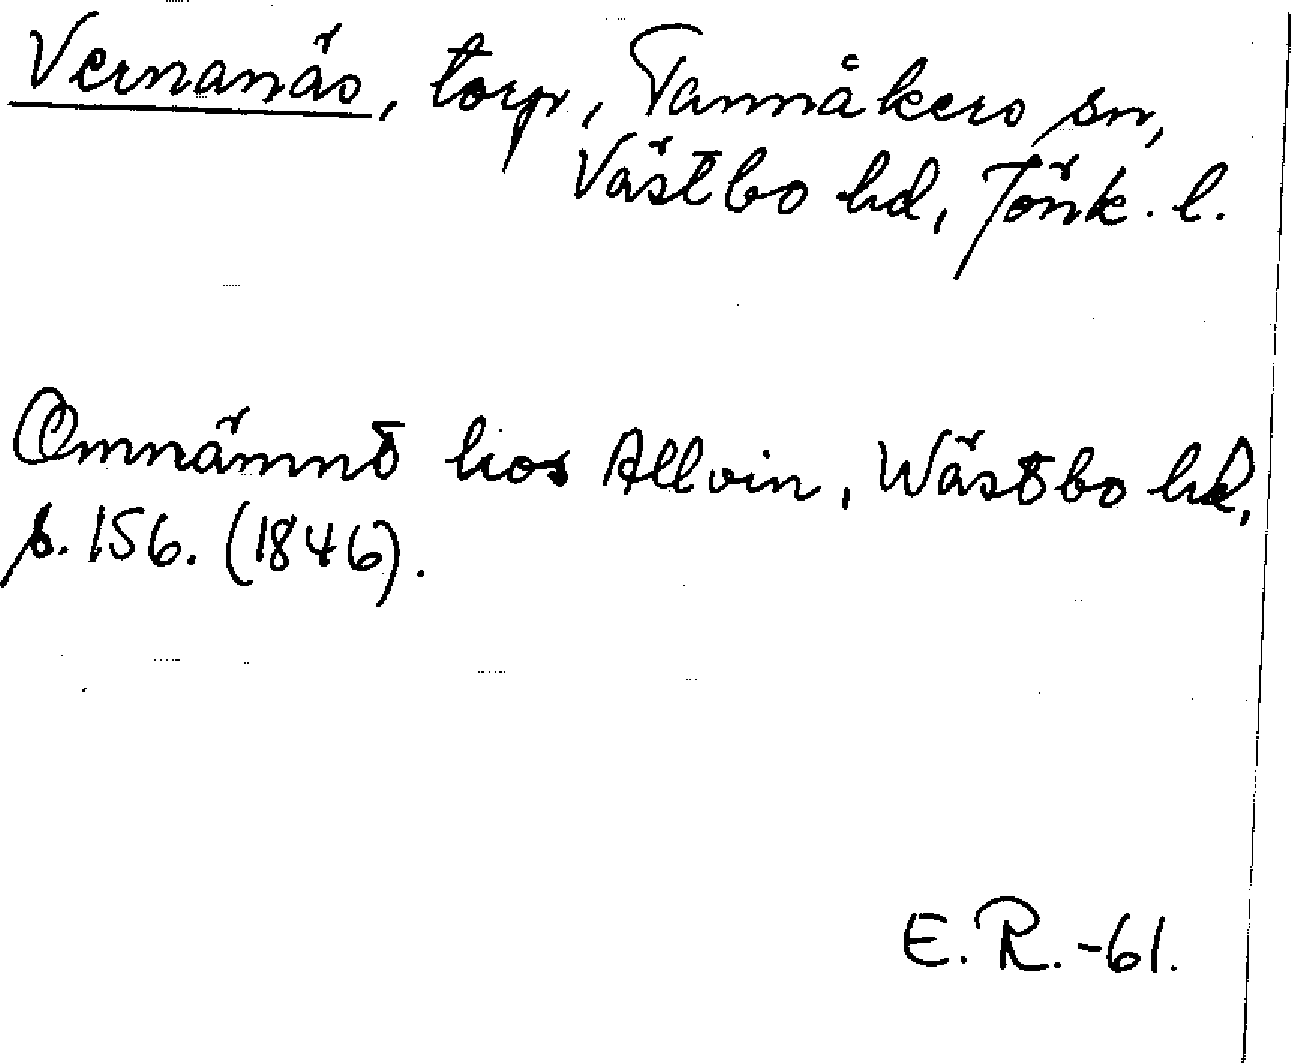 Vernanäs, torp, Tannåkers sn,
Västbo hd, Jönk. l.
Omnämnt hos Allvin, Wästbo hd,
s. 156. (1846).
E. R. -61.